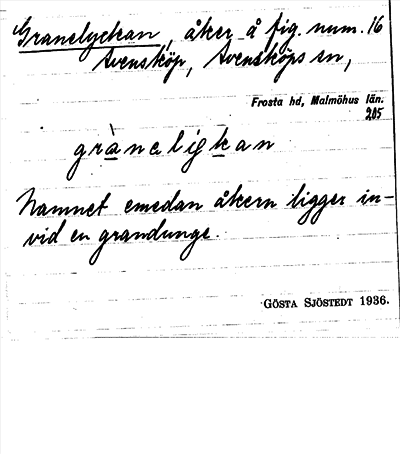 Granelyckan, åker å fig. num. 16
Svensköp, Svensköps sn,
Frosta hd, Malmöhus län.
205
grànaligkan
Namnet emedan åkern ligger in-
vid en grandunge.
GÖSTA SJÖSTEDT 1936.